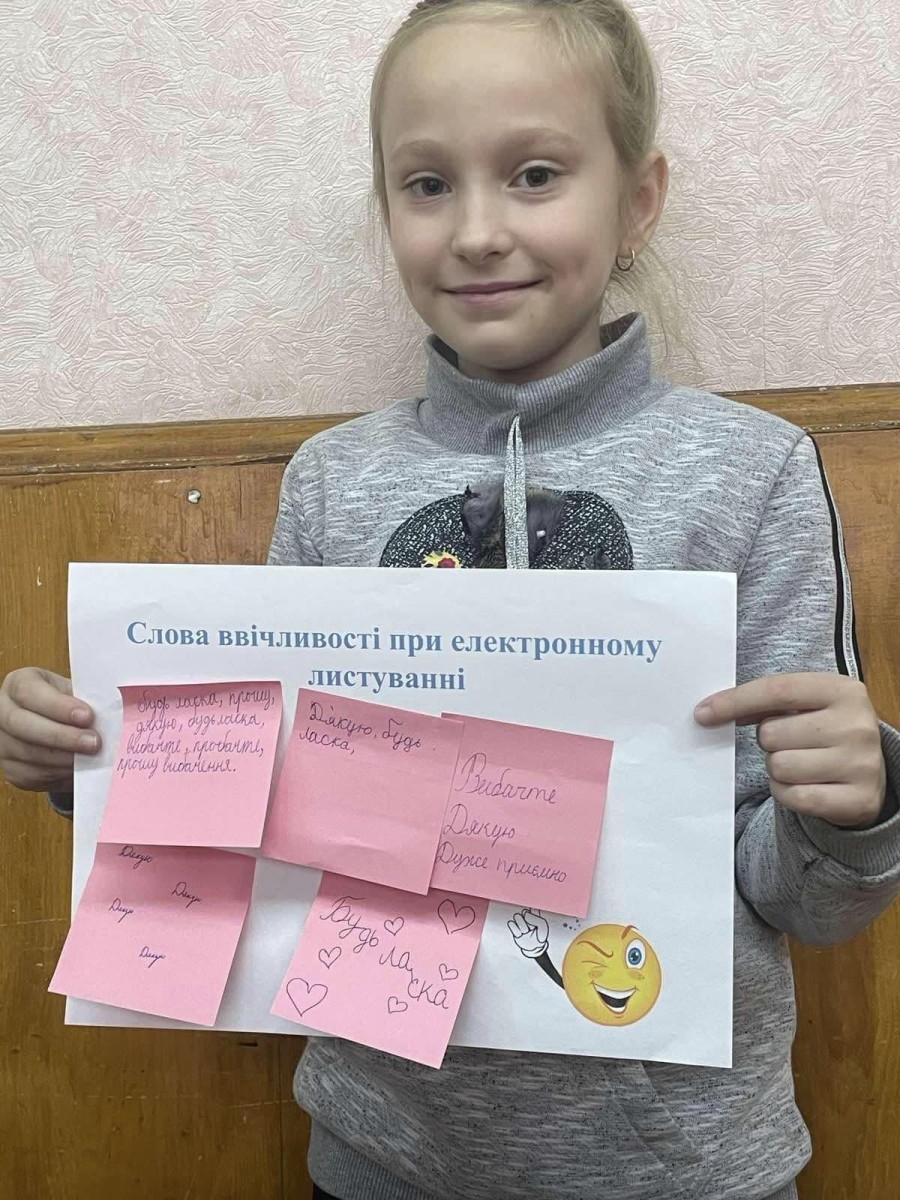 Слова ввічливості при електронному
листуванні
будь ласка, прошу,
дякую, будь ласка,
вибачте, пробачте,
прошу вибачення.
Дякую, будь
ласка,
Вибачте
Дякую
Дуже приємно
Дякую
Дякую
Дякую
Дякую
Будь
ласка